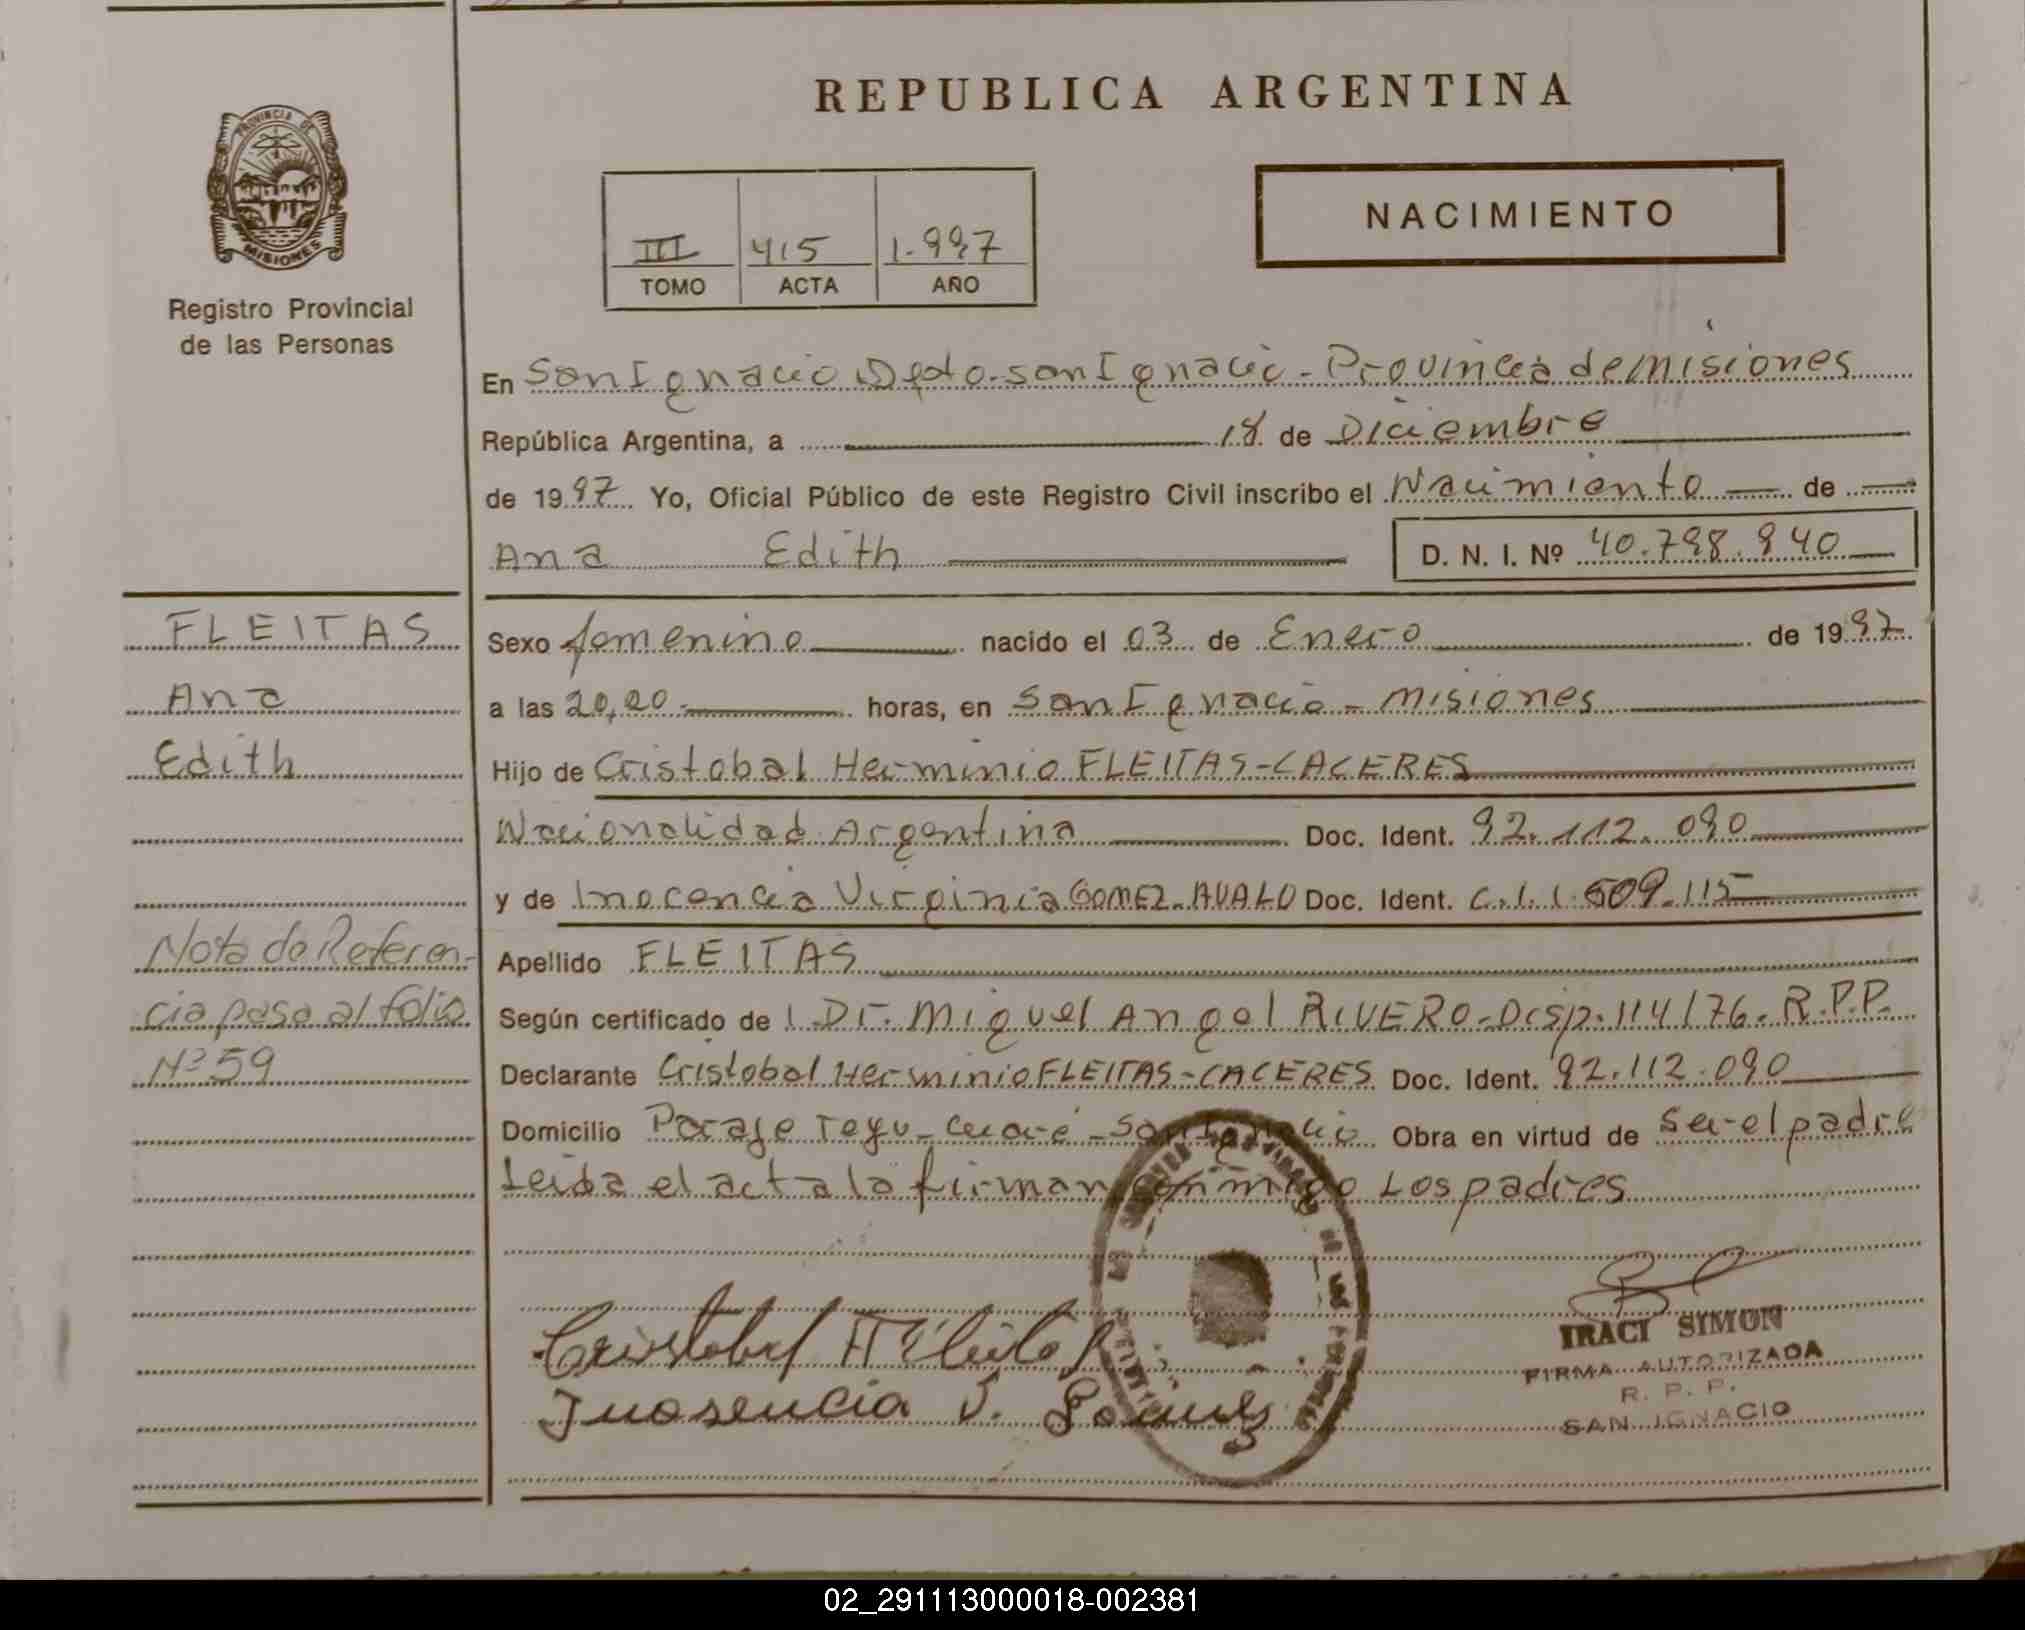 REPUBLICA ARGENTINA
PROVINCIA DE
MISIONES
Registro Provincial
de las Personas
III 415 1.997
TOMO ACTA AÑO
NACIMIENTO
En San Ignacio Dpto. San Ignacio - Provincia de Misiones
República Argentina, a 18 de Diciembre
de 1997 Yo, Oficial Público de este Registro Civil inscribo el Nacimiento de
Ana Edith D. N. I. Nº 40.798.940
FLEITAS
Ana
Edith
Nota de Referen-
cia pasa al folio
Nº 59
Sexo femenino nacido el 03 de Enero de 1997
a las 20,00 horas, en San Ignacio - Misiones
Hijo de Cristobal Herminio FLEITAS-CACERES
Nacionalidad Argentina Doc. Ident. 92.112.090
y de Inocencia Virginia GOMEZ-AVALO Doc. Ident. C.I. 609.115
Apellido FLEITAS
Según certificado de Dr. Miguel Angel RIVERO-Disp. 114/76. R.P.P.
Declarante Cristobal Herminio FLEITAS-CACERES Doc. Ident. 92.112.090
Domicilio Paraje Teyu-Cuaré - San Ignacio Obra en virtud de ser el padre
Leida el acta la firman conmigo Los padres
Cristobal
Inosencia V. Gomez
IRACI SIMON
FIRMA AUTORIZADA
R. P. P.
SAN IGNACIO
02_291113000018-002381